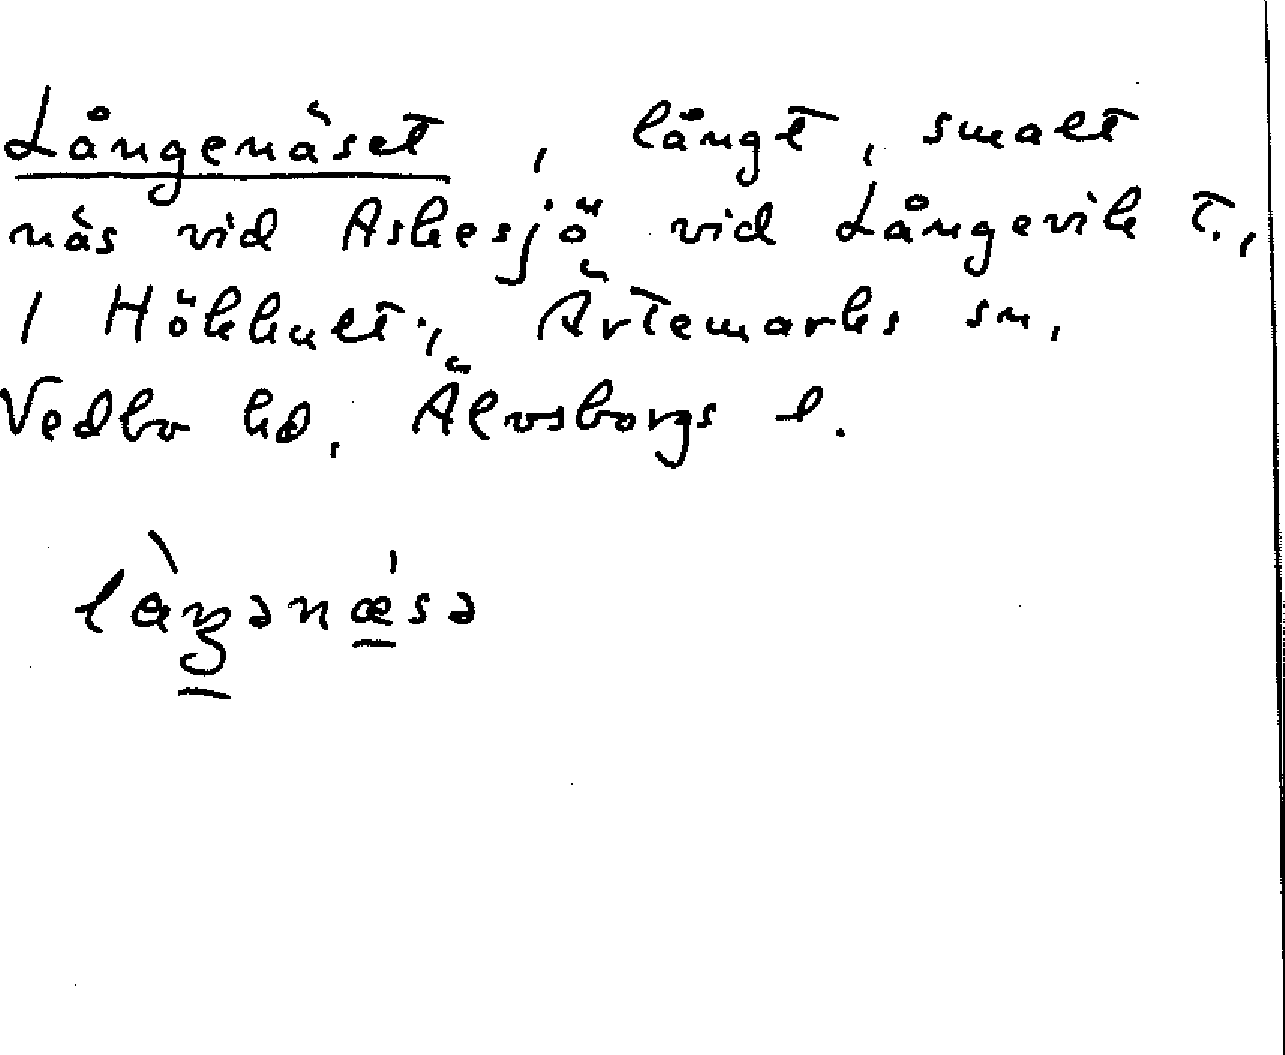 Långenäset, långt, smalt
näs vid Askesjö vid Långevik t.,
1 Hökhult, Ärtemarks sn,
Vedbo hd, Älvsborgs l.